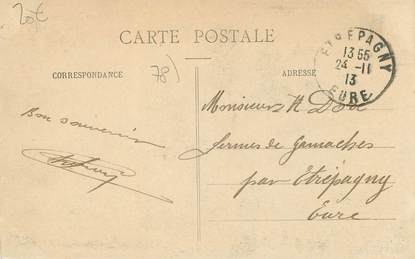 20€
CARTE POSTALE
CORRESPONDANCE
78)
ADRESSE
ETRÉPAGNY
13 55
24 - 11
13
EURE
Bon souvenir
Monsieur H Doré
fermes de Gamaches
par Etrépagny
Eure